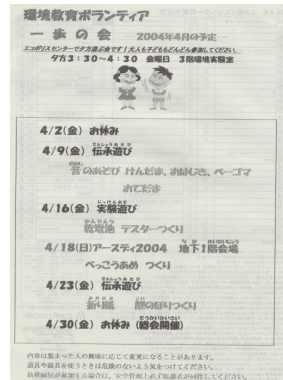 環境教育ボランティア
一歩の会 2004年4月の予定
エコポリスセンターで夕方遊ぶ会です!大人も子どももどんどん参加してください。
夕方3:30~4:30 金曜日 3階環境実験室
4/2(金) お休み
4/9(金) 伝承遊び
昔のあそび けんだま、おはじき、ベーゴマ
おてだま
4/16(金) 実験遊び
乾電池 テスターつくり
4/18(日)アースデイ2004 地下1階会場
べっこうあめ つくり
4/23(金) 伝承遊び
折り紙
4/30(金) お休み (総会開催)
内容は集まった人の興味に応じて変更になることがあります。
道具や器具を使うときは危険のないよう気をつけてください。
幼稚園児が参加する場合は、安全管理上必ず保護者が同伴してください。